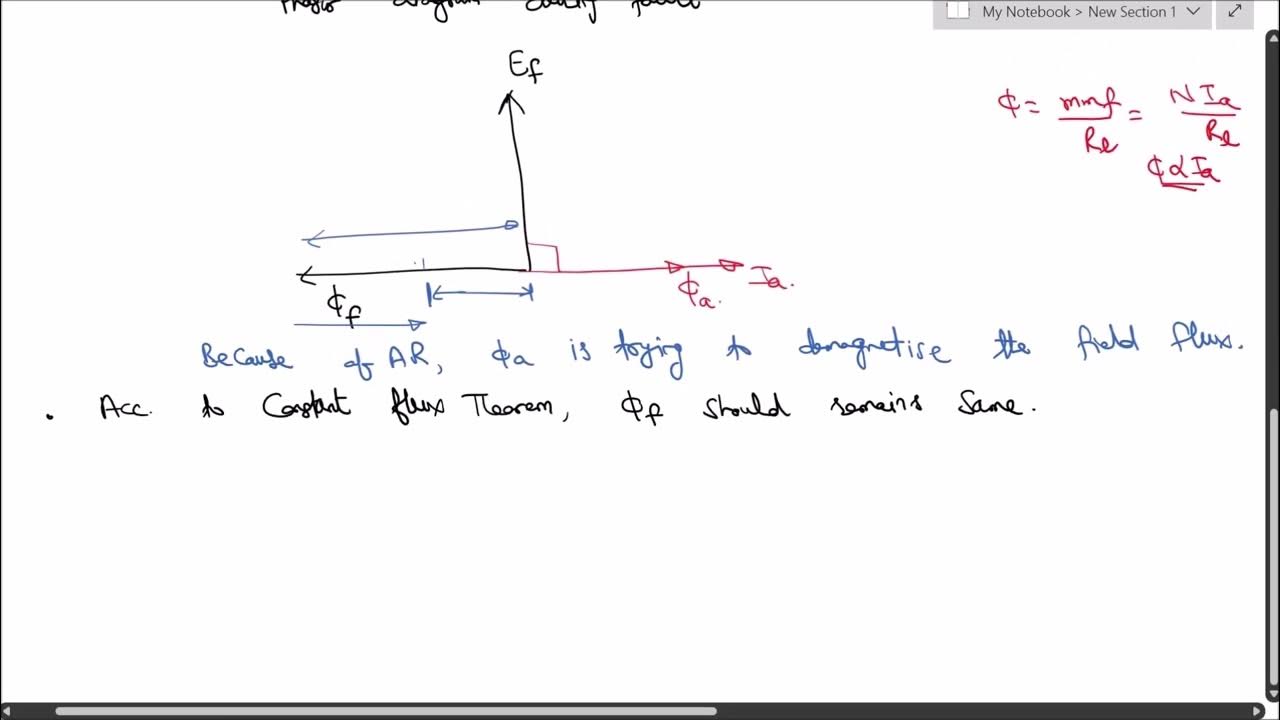 Phasor diagram during fault
My Notebook > New Section 1
Ef
¢ = mmf/Re = NIa/Re
¢ α Ia
¢f
¢a.
Ia.
Because of AR, ϕa is trying to demagnetise the field flux.
. Acc. to Constant flux Theorem, ϕf should remains same.